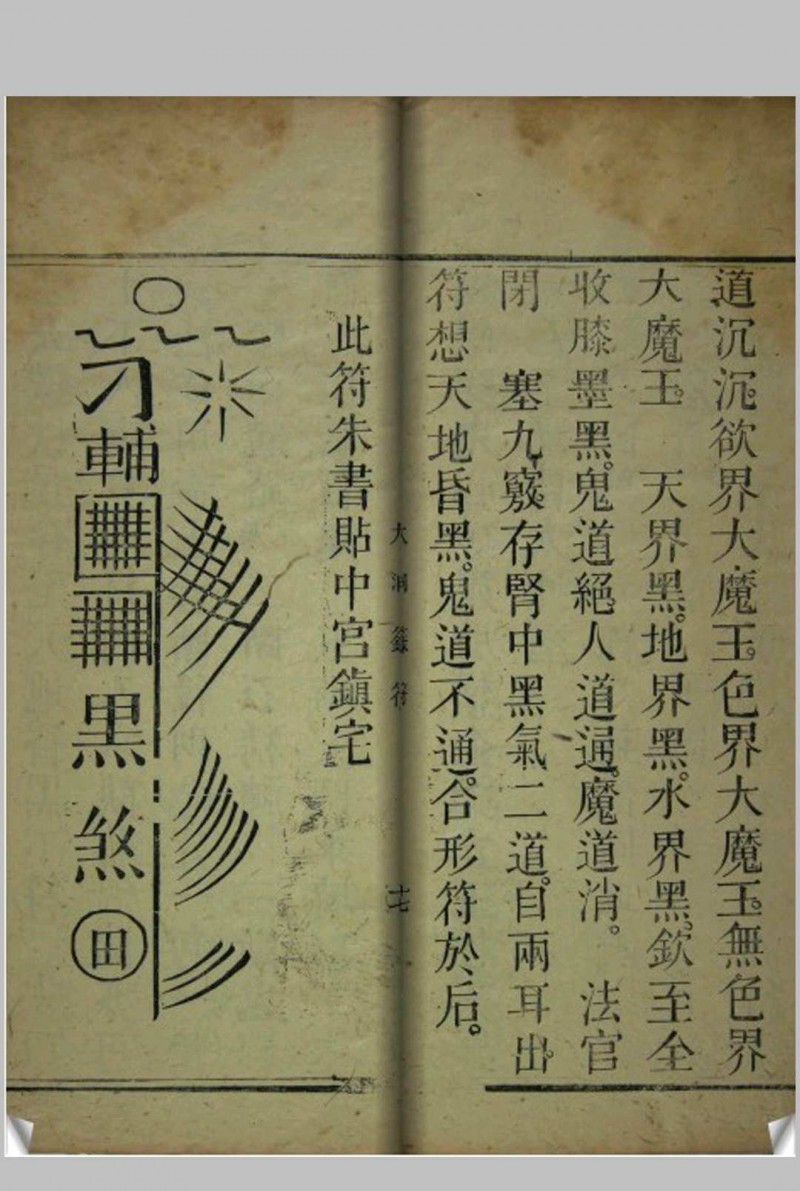 道沉沉。欲界大魔王。色界大魔王。無色界
大魔王。 天界黑。地界黑。水界黑。欽至全
收膝墨黑。鬼道絕人道通。魔道消。 法官
閉 塞九竅存腎中黑氣二道。自兩耳出。
符想天地昏黑。鬼道不通。合形符於后。
大洞籙符 十七
此符朱書貼中宮鎮宅
輔
黒
煞
田